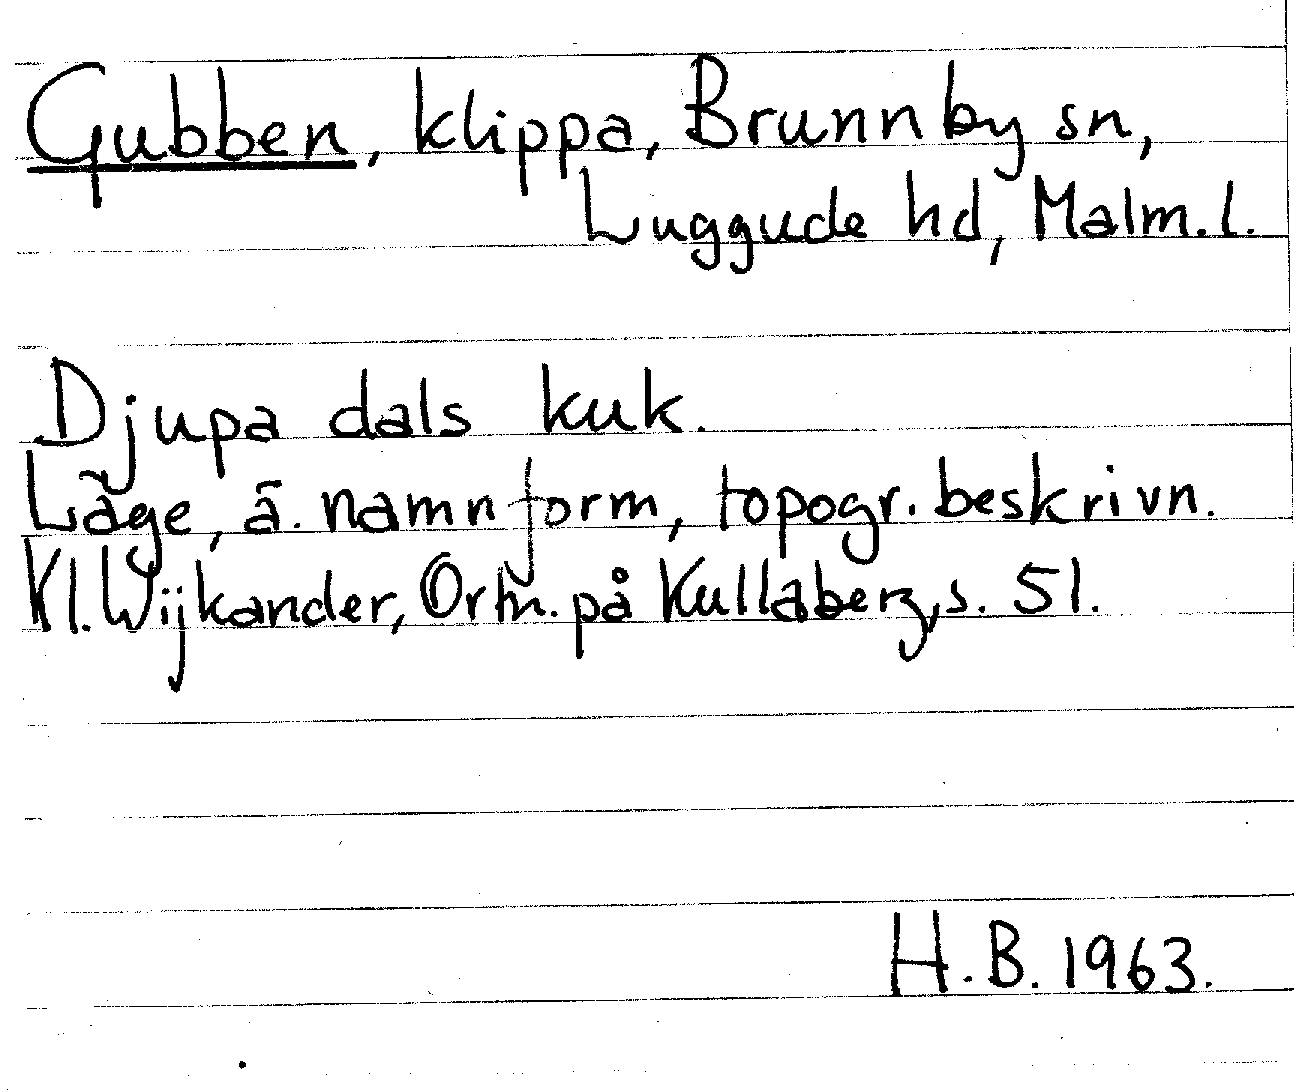 Gubben, klippa, Brunnby sn,
Luggude hd, Malm. l.
Djupa dals kuk.
Läge, ä. namnform, topogr. beskrivn.
Kl. Wijkander, Ortn. på Kullaberg, s. 51.
H. B. 1963.